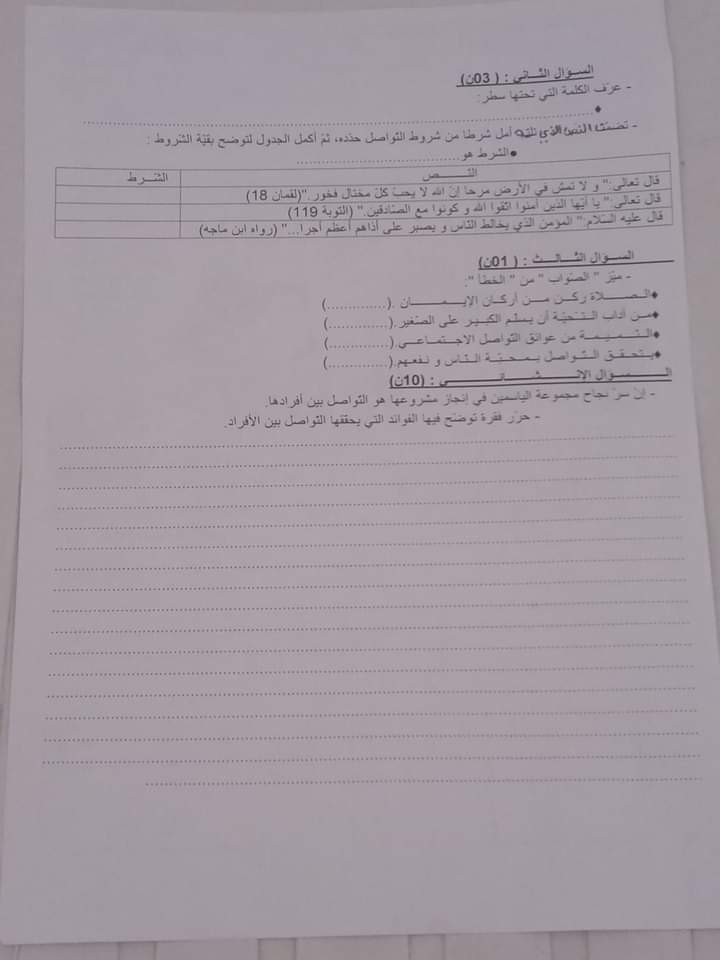 السؤال الثاني : ( 03ن)
- عرّف الكلمة التي تحتها سطر:
♦......................................................
- تضمّن النص الذي تلته أمل شرطا من شروط التواصل حدّده، ثمّ أكمل الجدول لتوضح بقيّة الشروط :
●الشرط هو......................................
النــــص الشــرط
قال تعالى:" و لا تمش في الأرض مرحا إنّ الله لا يحبّ كلّ مختال فخور."(لقمان 18)
قال تعالى:" يا أيّها الذين آمنوا اتّقوا الله و كونوا مع الصّادقين." (التوبة 119)
قال عليه السّلام:" المؤمن الذي يخالط النّاس و يصبر على أذاهم أعظم أجرا..." (رواه ابن ماجه)
الســؤال الثــالــث : ( 01ن)
- ميّز " الصّواب " من " الخطأ ":
♦الــصــلاة ركــن مــن أركــان الإيــمــان .(..............)
♦مــن آداب الــتّحيّة أن يــسلّم الكبيــر على الصّغير.(..............)
♦الــنّــمــيــمــة من عوائق التواصل الاجــتــمــاعــي.(..............)
♦يــتــحقــق الــتّــواصل بــمــحبّــة الــنّاس و نــفعــهم.(..............)
الــســؤال الإنــشــائــي : (10ن)
- إنّ سرّ نجاح مجموعة الياسمين في إنجاز مشروعها هو التّواصل بين أفرادها.
- حرّر فقرة توضّح فيها الفوائد التي يحقّقها التّواصل بين الأفراد.